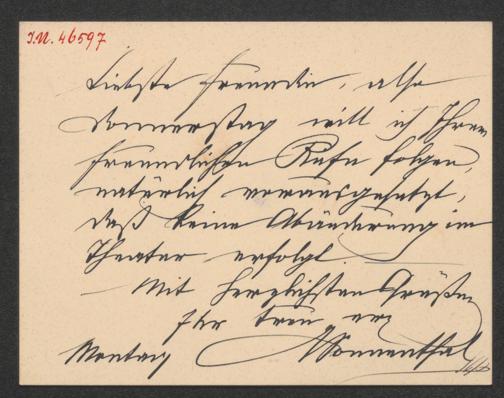 I.N. 46597
Liebste Freundin, also
Donnerstag will ich Ihrem
freundlichen Rufe folgen,
natürlich vorausgesetzt,
daß keine Abänderung im
Theater erfolgt.
— Mit herzlichsten Grüßen
Ihr treu erg
ASonnenthal
Montag